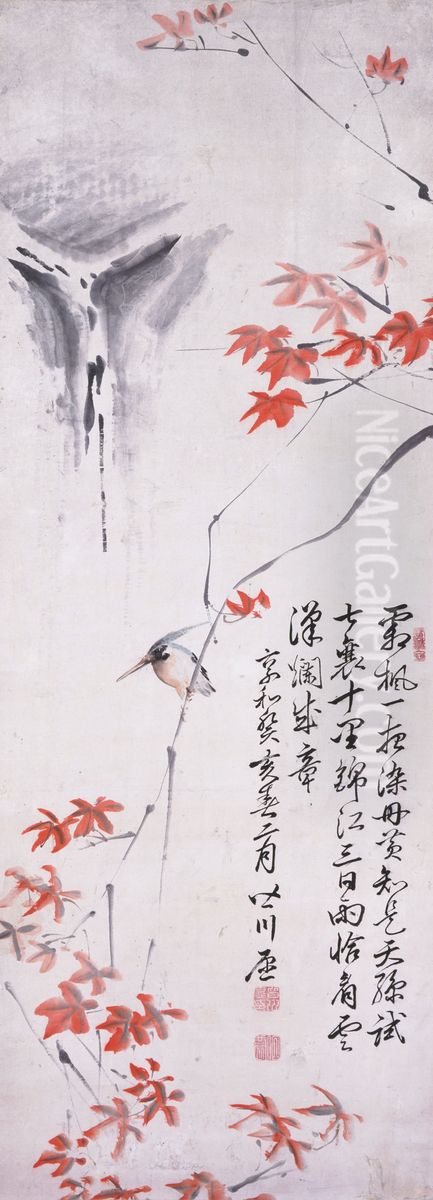 霜楓一夜染丹黄知是天孫試
七襄十里錦江三日雨恰看雲
漢爛成章
享和癸亥春三月
NiceArtGallery.com